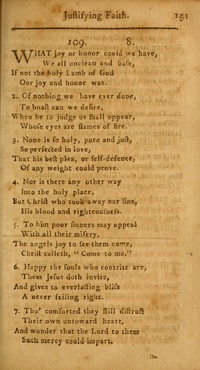 Justifying Faith. 151
109. 8.
WHAT joy or honor could we have,
We all unclean and base,
If not the holy Lamb of God
Our joy and honor was.
2. Of nothing we have ever done,
To boast can we desire,
When he to judge us shall appear,
Whose eyes are flames of fire.
3. None is so holy, pure and just,
So perfected in love,
That his best plea, or self-defence,
Of any weight could prove.
4. Nor is there any other way
Into the holy place,
But Christ who took away our sins,
His blood and righteousness.
5. To him poor sinners may appeal
With all their misery,
The angels joy to see them come,
Christ calleth, "Come to me."
6. Happy the souls who contrite are,
Them Jesus doth invite,
And gives to everlasting bliss
A never failing right.
7. Tho' comforted they still distrust
Their own untoward heart,
And wonder that the Lord to them
Such mercy could impart.